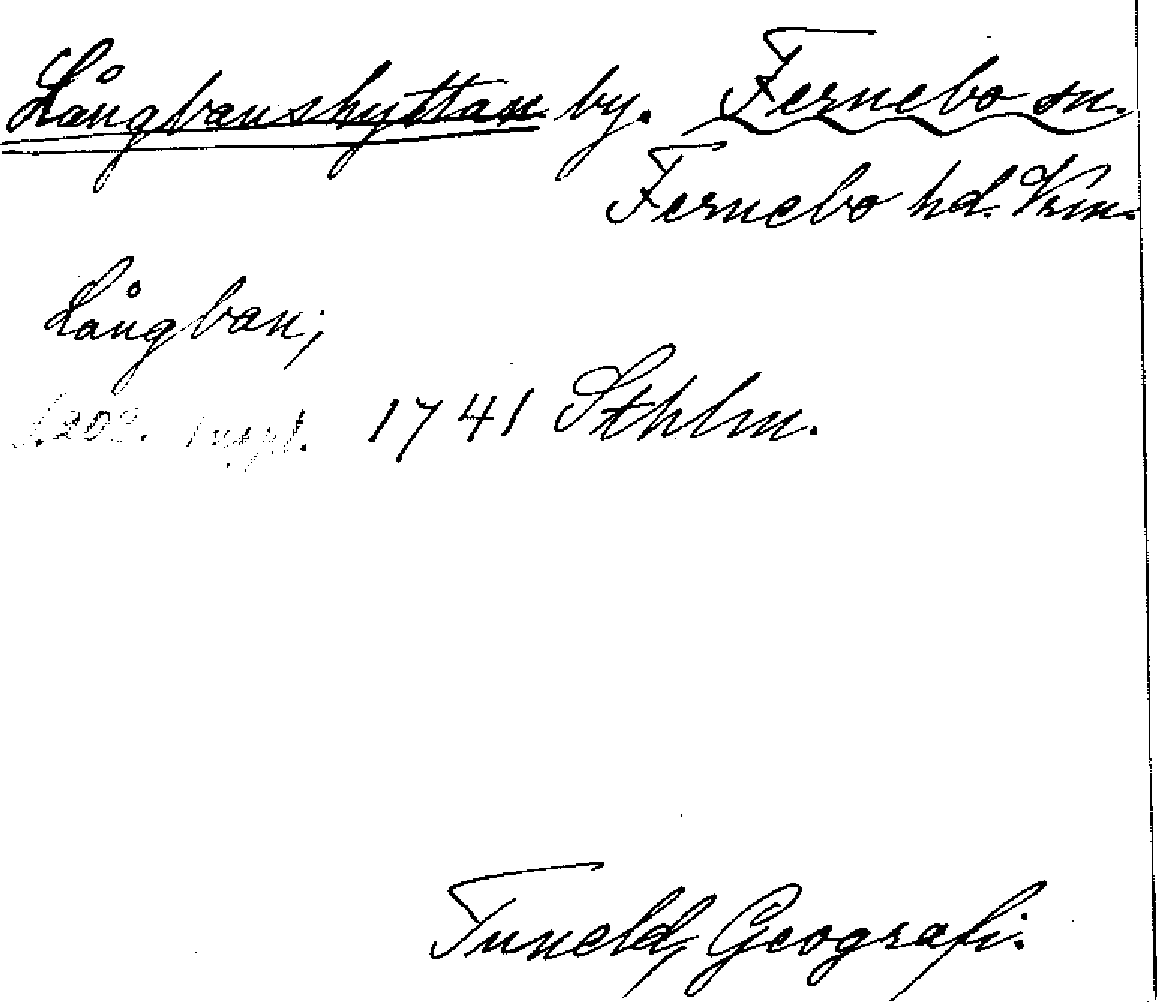 Långbanshyttan by. Fernebo sn.
Fernebo hd. Vrm.
Långban;
s. 202. 1 uppl. 1741 Sthlm.
Tuneld, Geografi.